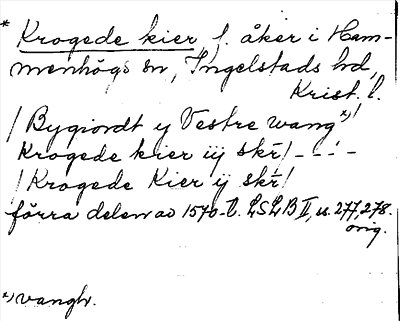 * Krogede kier f. åker i Ham-
menhögs sn, Ingelstads hd,
Krist. l.
/ Bygiordt y Vestre wang*) /
Krogede krier iij skr̄ / - - -
/ Krogede Kier ij skr̄ /
förra delen av 1570-t. LSLB II, s. 277, 278.
orig.
*) vangh.